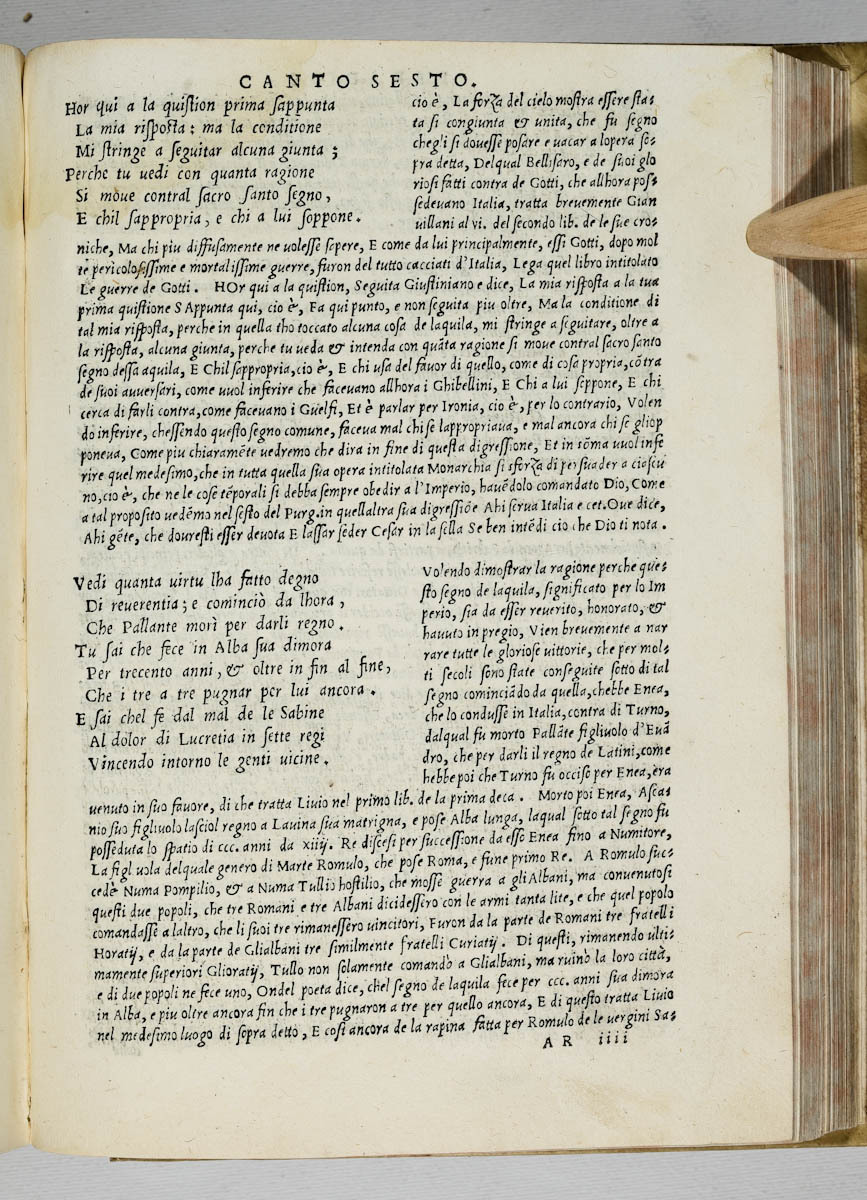 CANTO SESTO.
Hor qui a la quistion prima sappunta
La mia risposta: ma la conditione
Mi stringe a seguitar alcuna giunta;
Perche tu uedi con quanta ragione
Si moue contral sacro santo segno,
E chil sappropria, e chi a lui soppone.
cio è, La forza del cielo mostra essere sta-
ta si congiunta & unita, che fu segno
chegli si douesse posare e uacar a lopera so-
pra detta, Delqual Bellisaro, e de suoi glo
riosi fatti contra de Gotti, che allhora pos-
sedeuano Italia, tratta breuemente Gian
uillani al vi. del secondo lib. de le sue cro-
niche, Ma chi piu diffusamente ne uolesse sepere, E come da lui principalmente, essi Gotti, dopo mol
te pericolosissime e mortalissime guerre, furon del tutto cacciati d'Italia, Lega quel libro intitolato
Le guerre de Gotti. HOr qui a la quistion, Seguita Giustiniano e dice, La mia risposta a la tua
prima quistione SAppunta qui, cio è, Fa qui punto, e non seguita piu oltre, Ma la conditione di
tal mia risposta, perche in quella tho toccato alcuna cosa de laquila, mi stringe a seguitare, oltre a
la risposta, alcuna giunta, perche tu ueda & intenda con quāta ragione si moue contral sacro santo
segno dessa aquila, E Chil sappropria, cio è, E chi usa del fauor di quello, come di cosa propria, cōtra
de suoi auuersari, come uuol inferire che faceuano allhora i Ghibellini, E Chi a lui soppone, E chi
cerca di farli contra, come faceuano i Guelfi, Et è parlar per Ironia, cio è, per lo contrario, Volen
do inferire, chessendo questo segno comune, faceua mal chi se lappropriaua, e mal ancora chi se gliop
poneua, Come piu chiaramēte uedremo che dira in fine di questa digressione, Et in sōma uuol infe
rire quel medesimo, che in tutta quella sua opera intitolata Monarchia si sforza di persuader a ciascu
no, cio è, che ne le cose tēporali si debba sempre obedir a l'Imperio, hauēdolo comandato Dio, Come
a tal proposito uedēmo nel sesto del Purg. in quellaltra sua digressiōe Ahi serua Italia e cet. Oue dice,
Ahi gēte, che douresti esser deuota E lassar seder Cesar in la sella Se ben intēdi cio che Dio ti nota.
Vedi quanta uirtu lha fatto degno
Di reuerentia; e cominciò da lhora,
Che Pallante morì per darli regno.
Tu sai che fece in Alba sua dimora
Per trecento anni, & oltre in fin al fine,
Che i tre a tre pugnar per lui ancora.
E sai chel fe dal mal de le Sabine
Al dolor di Lucretia in sette regi
Vincendo intorno le genti uicine.
Volendo dimostrar la ragione perche que-
sto segno de laquila, significato per lo Im
perio, sia da esser reuerito, honorato, &
hauuto in pregio, Vien breuemente a nar
rare tutte le gloriose uittorie, che per mol-
ti secoli sono state conseguite sotto di tal
segno cominciādo da quella, chebbe Enea,
che lo condusse in Italia, contra di Turno,
dalqual fu morto Pallāte figliuolo d'Euā
dro, che per darli il regno de Latini, come
hebbe poi che Turno fu occiso per Enea, era
uenuto in suo fauore, di che tratta Liuio nel primo lib. de la prima deca. Morto poi Enea, Asca-
nio suo figliuolo lasciol regno a Lauina sua matrigna, e pose Alba lunga, laqual sotto tal segno fu
posseduta lo spatio di ccc. anni da xiiij. Re discesi per successione da esso Enea fino a Numitore,
La figl uola delquale genero di Marte Romulo, che pose Roma, e fune primo Re. A Romulo suc-
cedè Numa Pompilio, & a Numa Tullio hostilio, che mosse guerra a gli Albani, ma conuenutosi
questi due popoli, che tre Romani e tre Albani dicidessero con le armi tanta lite, e che quel popolo
comandasse a laltro, che li suoi tre rimanessero uincitori, Furon da la parte de Romani tre fratelli
Horatij, e da la parte de Glialbani tre similmente fratelli Curiatij. Di questi, rimanendo ulti-
mamente superiori Glioratij, Tullo non solamente comandò a Glialbani, ma ruinò la loro città,
e di due popoli ne fece uno, Ondel poeta dice, chel segno de laquila fece per ccc. anni sua dimora
in Alba, e piu oltre ancora fin che i tre pugnaron a tre per quello ancora, E di questo tratta Liuio
nel medesimo luogo di sopra detto, E cosi ancora de la rapina fatta per Romulo de le uergini Sa-
AR iiii